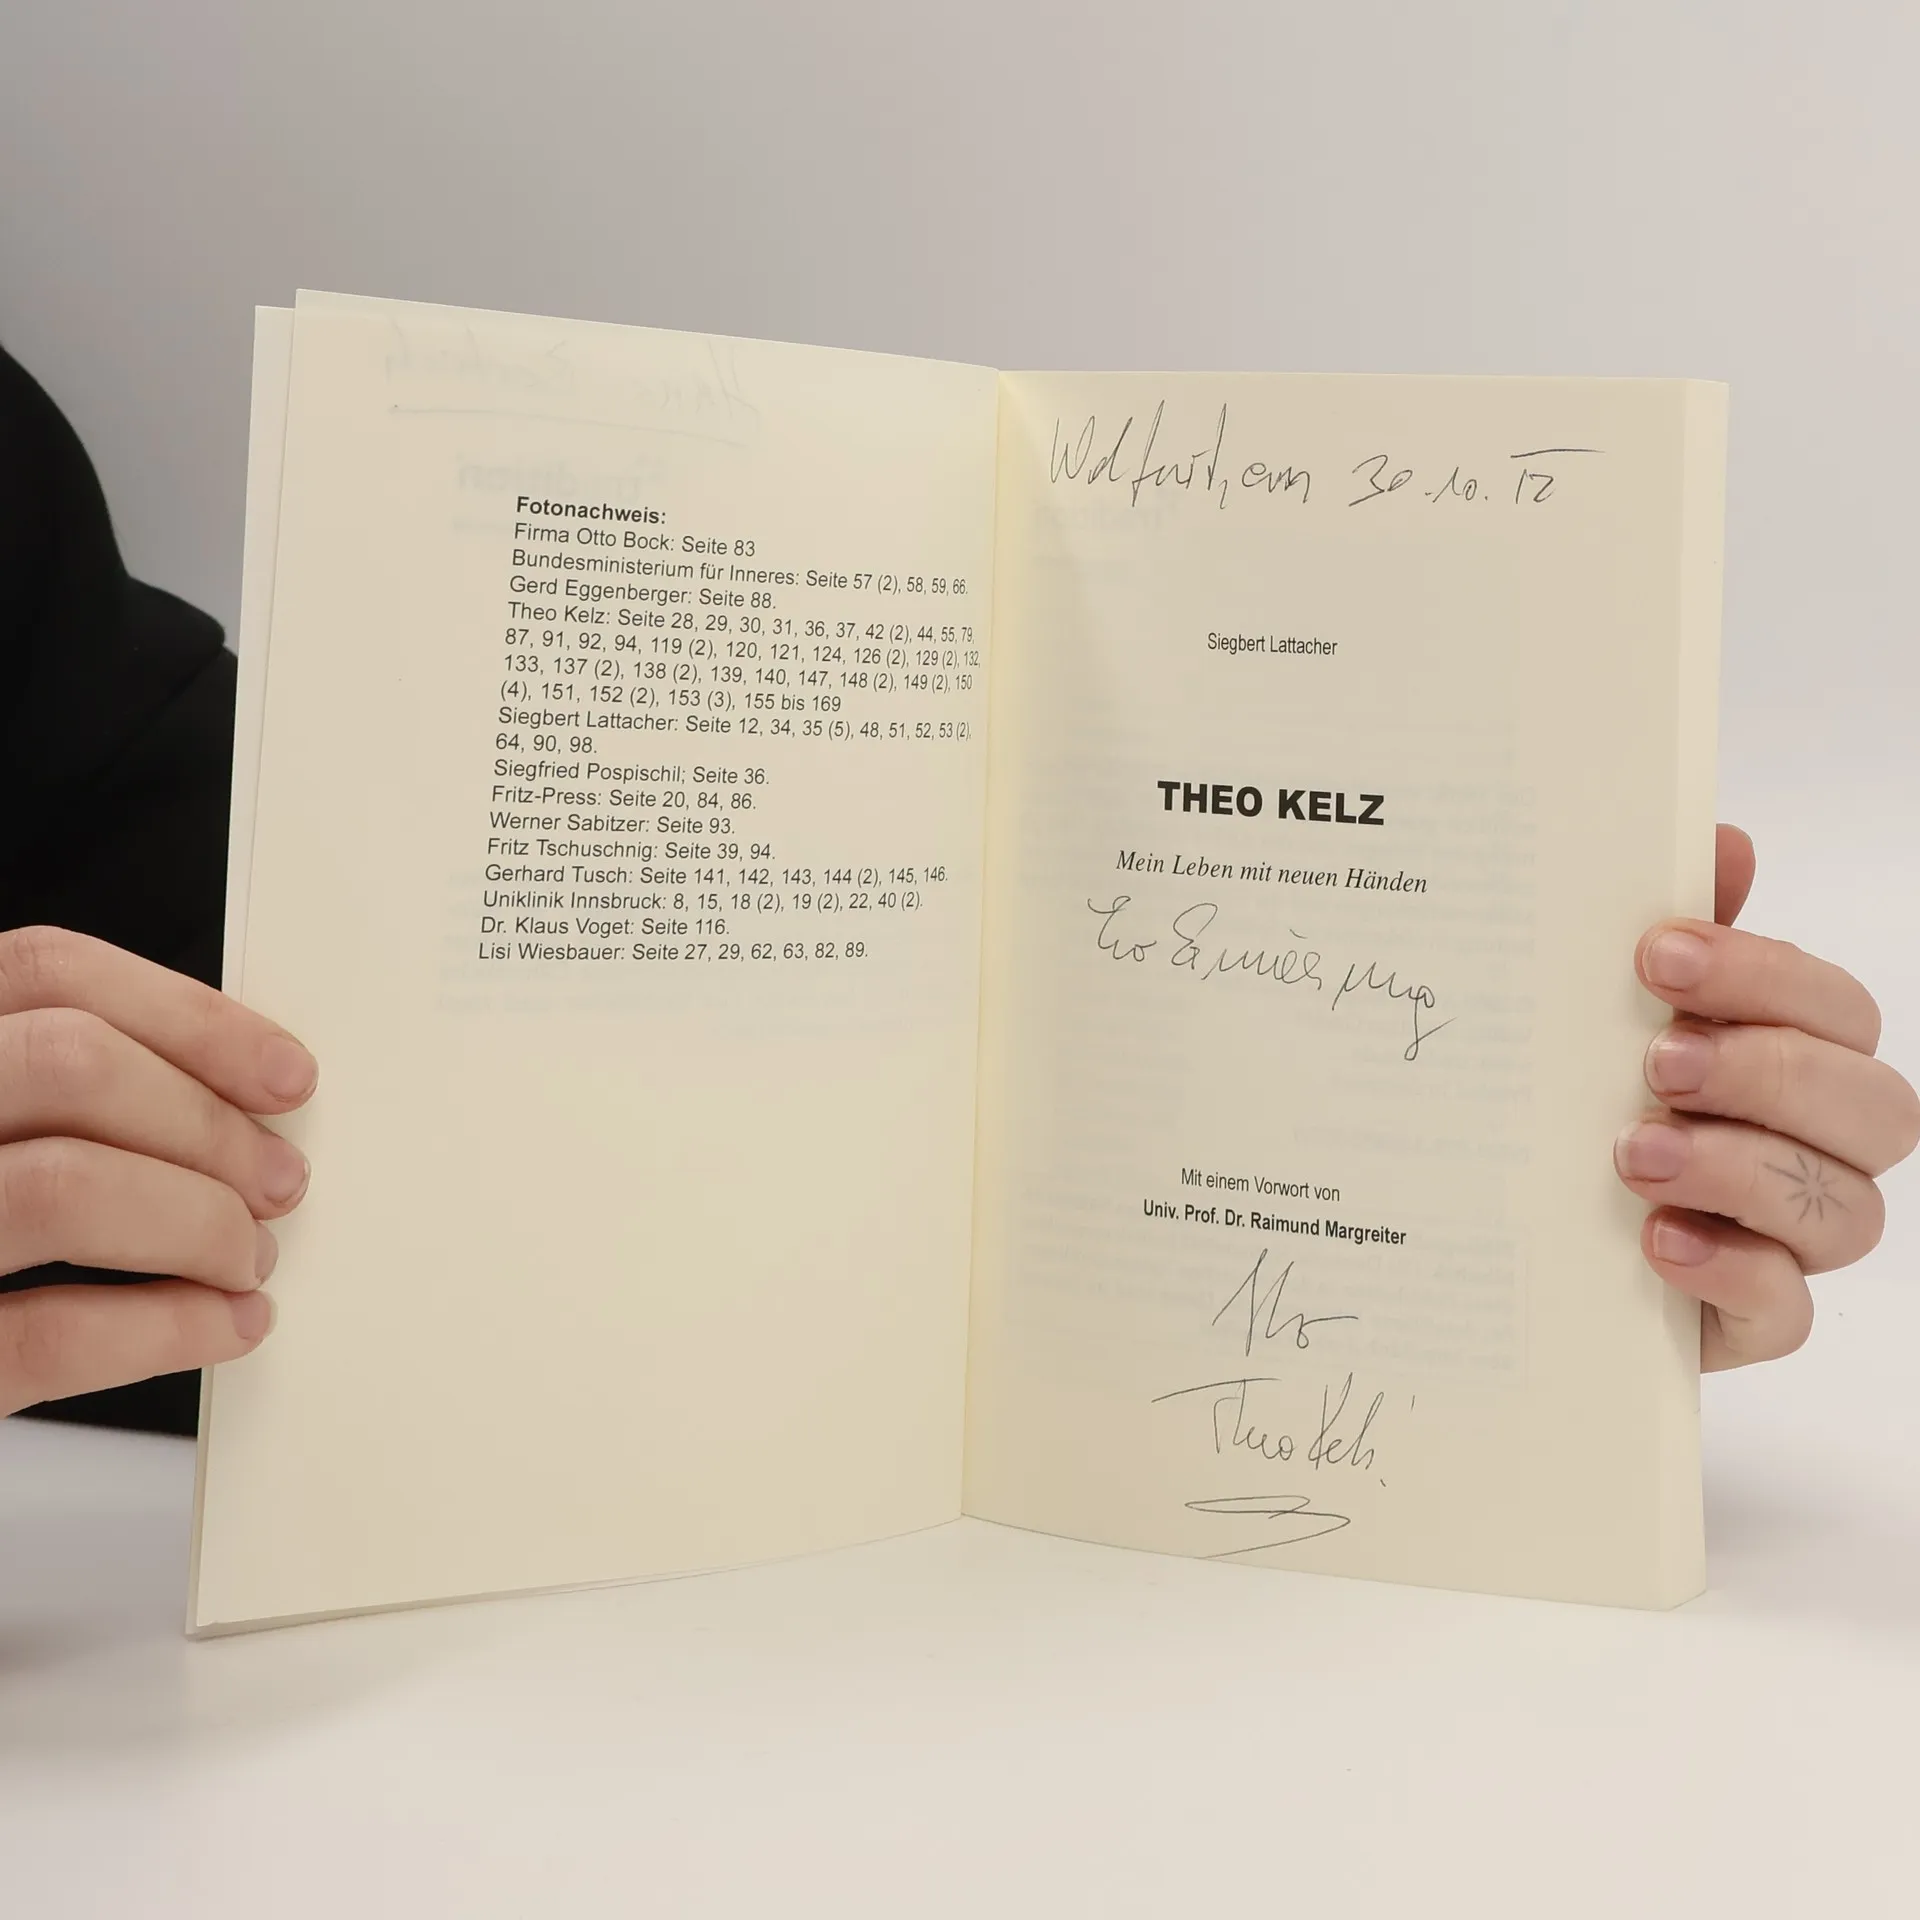 Fotonachweis:
Firma Otto Bock: Seite 83
Bundesministerium für Inneres: Seite 57 (2), 58, 59, 66.
Gerd Eggenberger: Seite 88.
Theo Kelz: Seite 28, 29, 30, 31, 36, 37, 42 (2), 44, 55, 79,
87, 91, 92, 94, 119 (2), 120, 121, 124, 126 (2), 129 (2), 132,
133, 137 (2), 138 (2), 139, 140, 147, 148 (2), 149 (2), 150
(4), 151, 152 (2), 153 (3), 155 bis 169
Siegbert Lattacher: Seite 12, 34, 35 (5), 48, 51, 52, 53 (2),
64, 90, 98.
Siegfried Pospischil; Seite 36.
Fritz-Press: Seite 20, 84, 86.
Werner Sabitzer: Seite 93.
Fritz Tschuschnig: Seite 39, 94.
Gerhard Tusch: Seite 141, 142, 143, 144 (2), 145, 146.
Uniklinik Innsbruck: 8, 15, 18 (2), 19 (2), 22, 40 (2).
Dr. Klaus Voget: Seite 116.
Lisi Wiesbauer: Seite 27, 29, 62, 63, 82, 89.
Wolfurt, am 30.10.12
Siegbert Lattacher
THEO KELZ
Mein Leben mit neuen Händen
Zur Erinnerung
Mit einem Vorwort von
Univ. Prof. Dr. Raimund Margreiter
Theo Kelz